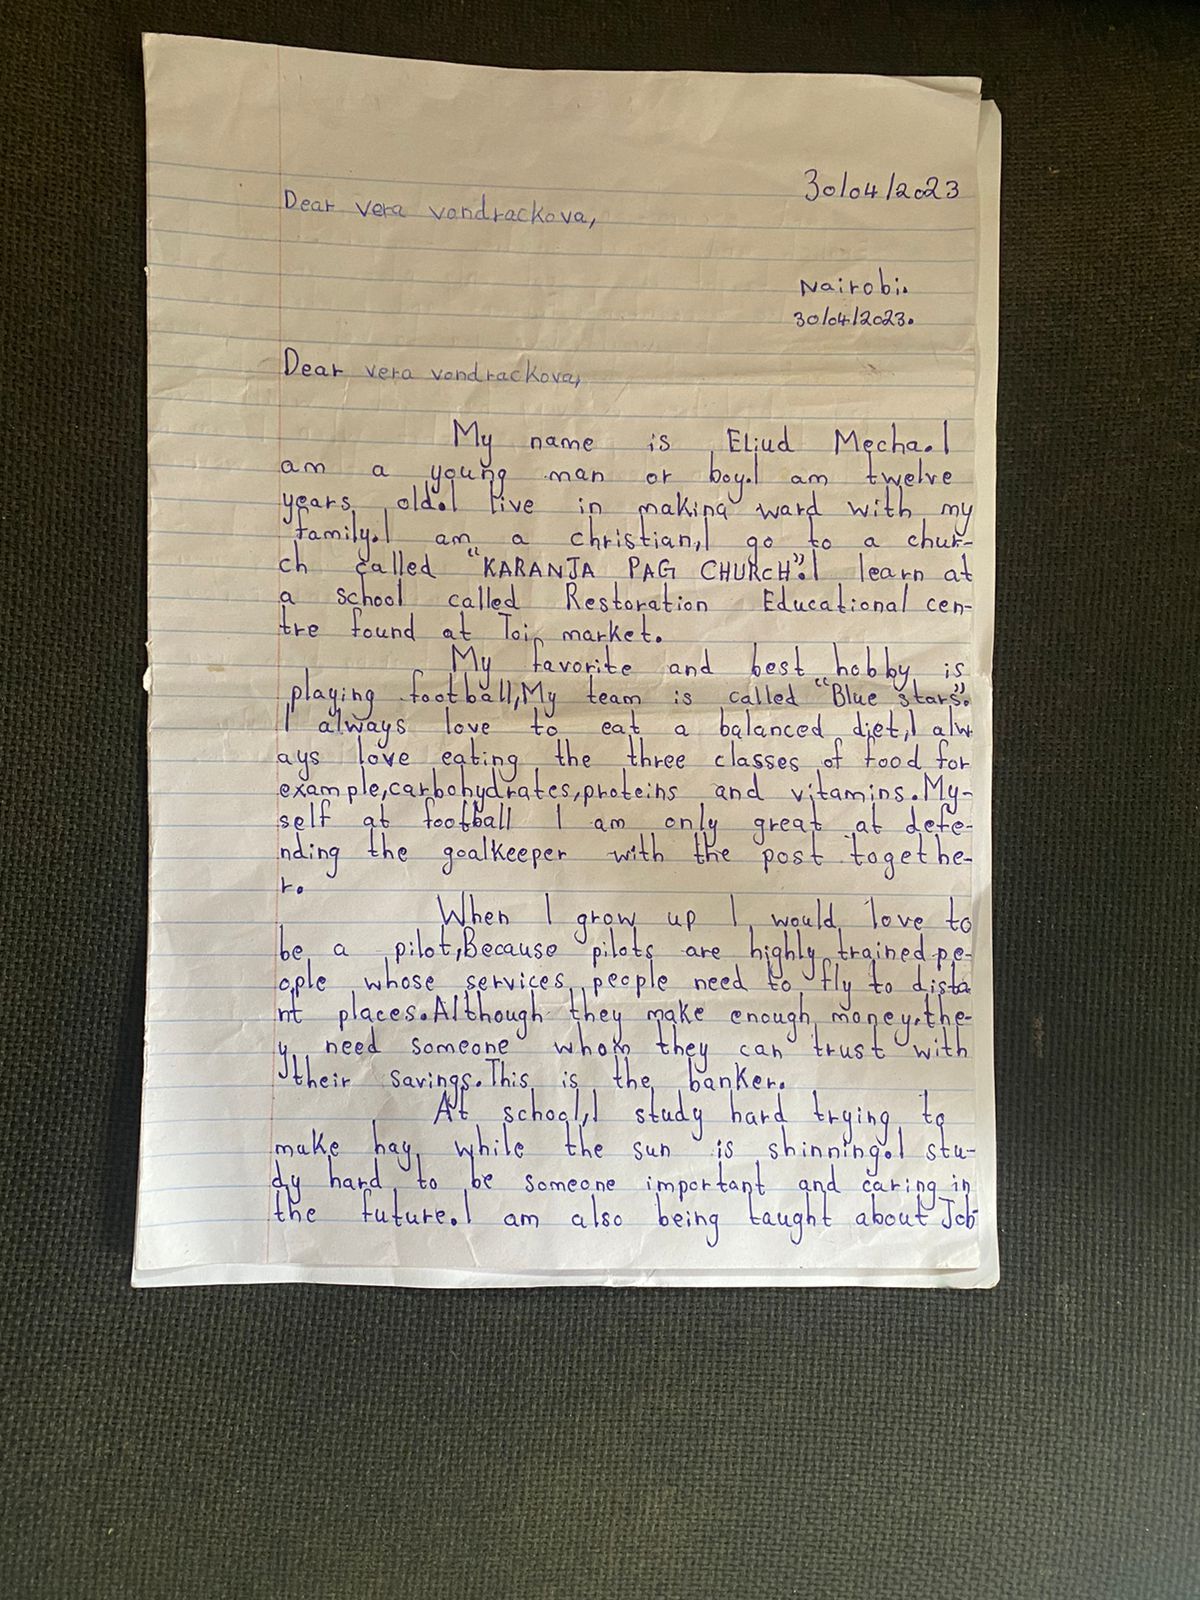 30/04/2023
Dear vera vondrackova,
Nairobi.
30/04/2023.
Dear vera vondrackova,
My name is Eliud Mecha.I
am a young man or boy.I am twelve
years old.I live in makina ward with my
family.I am a christian,I go to a chur-
ch called "KARANJA PAG CHURCH".I learn at
a school called Restoration Educational cen-
tre found at Toi market.
My favorite and best hobby is
playing football,My team is called "Blue stars".
I always love to eat a balanced diet,I alw
ays love eating the three classes of food for
example,carbohydrates,proteins and vitamins.My-
self at football I am only great at defe-
nding the goalkeeper with the post togethe-
r.
When I grow up I would love to
be a pilot,Because pilots are highly trained pe-
ople whose services people need to fly to dista
nt places.Although they make enough money,the-
y need someone whom they can trust with
their savings.This is the banker.
At school,I study hard trying to
make hay while the sun is shinning.I stu-
dy hard to be someone important and caring in
the future.I am also being taught about Job